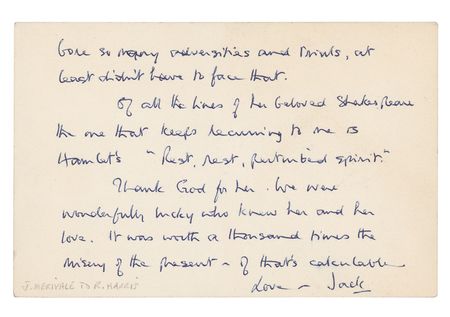 bore so many adversities and trials, at
least didn't have to face that.
Of all the lines of her beloved Shakespeare
the one that keeps recurring to me is
Hamlet's "Rest, rest, perturbed spirit."
Thank God for her. We were
wonderfully lucky who knew her and her
love. It was worth a thousand times the
misery of the present - if that's calculable
Love - Jack
J. MERIVALE TO R. HARRIS